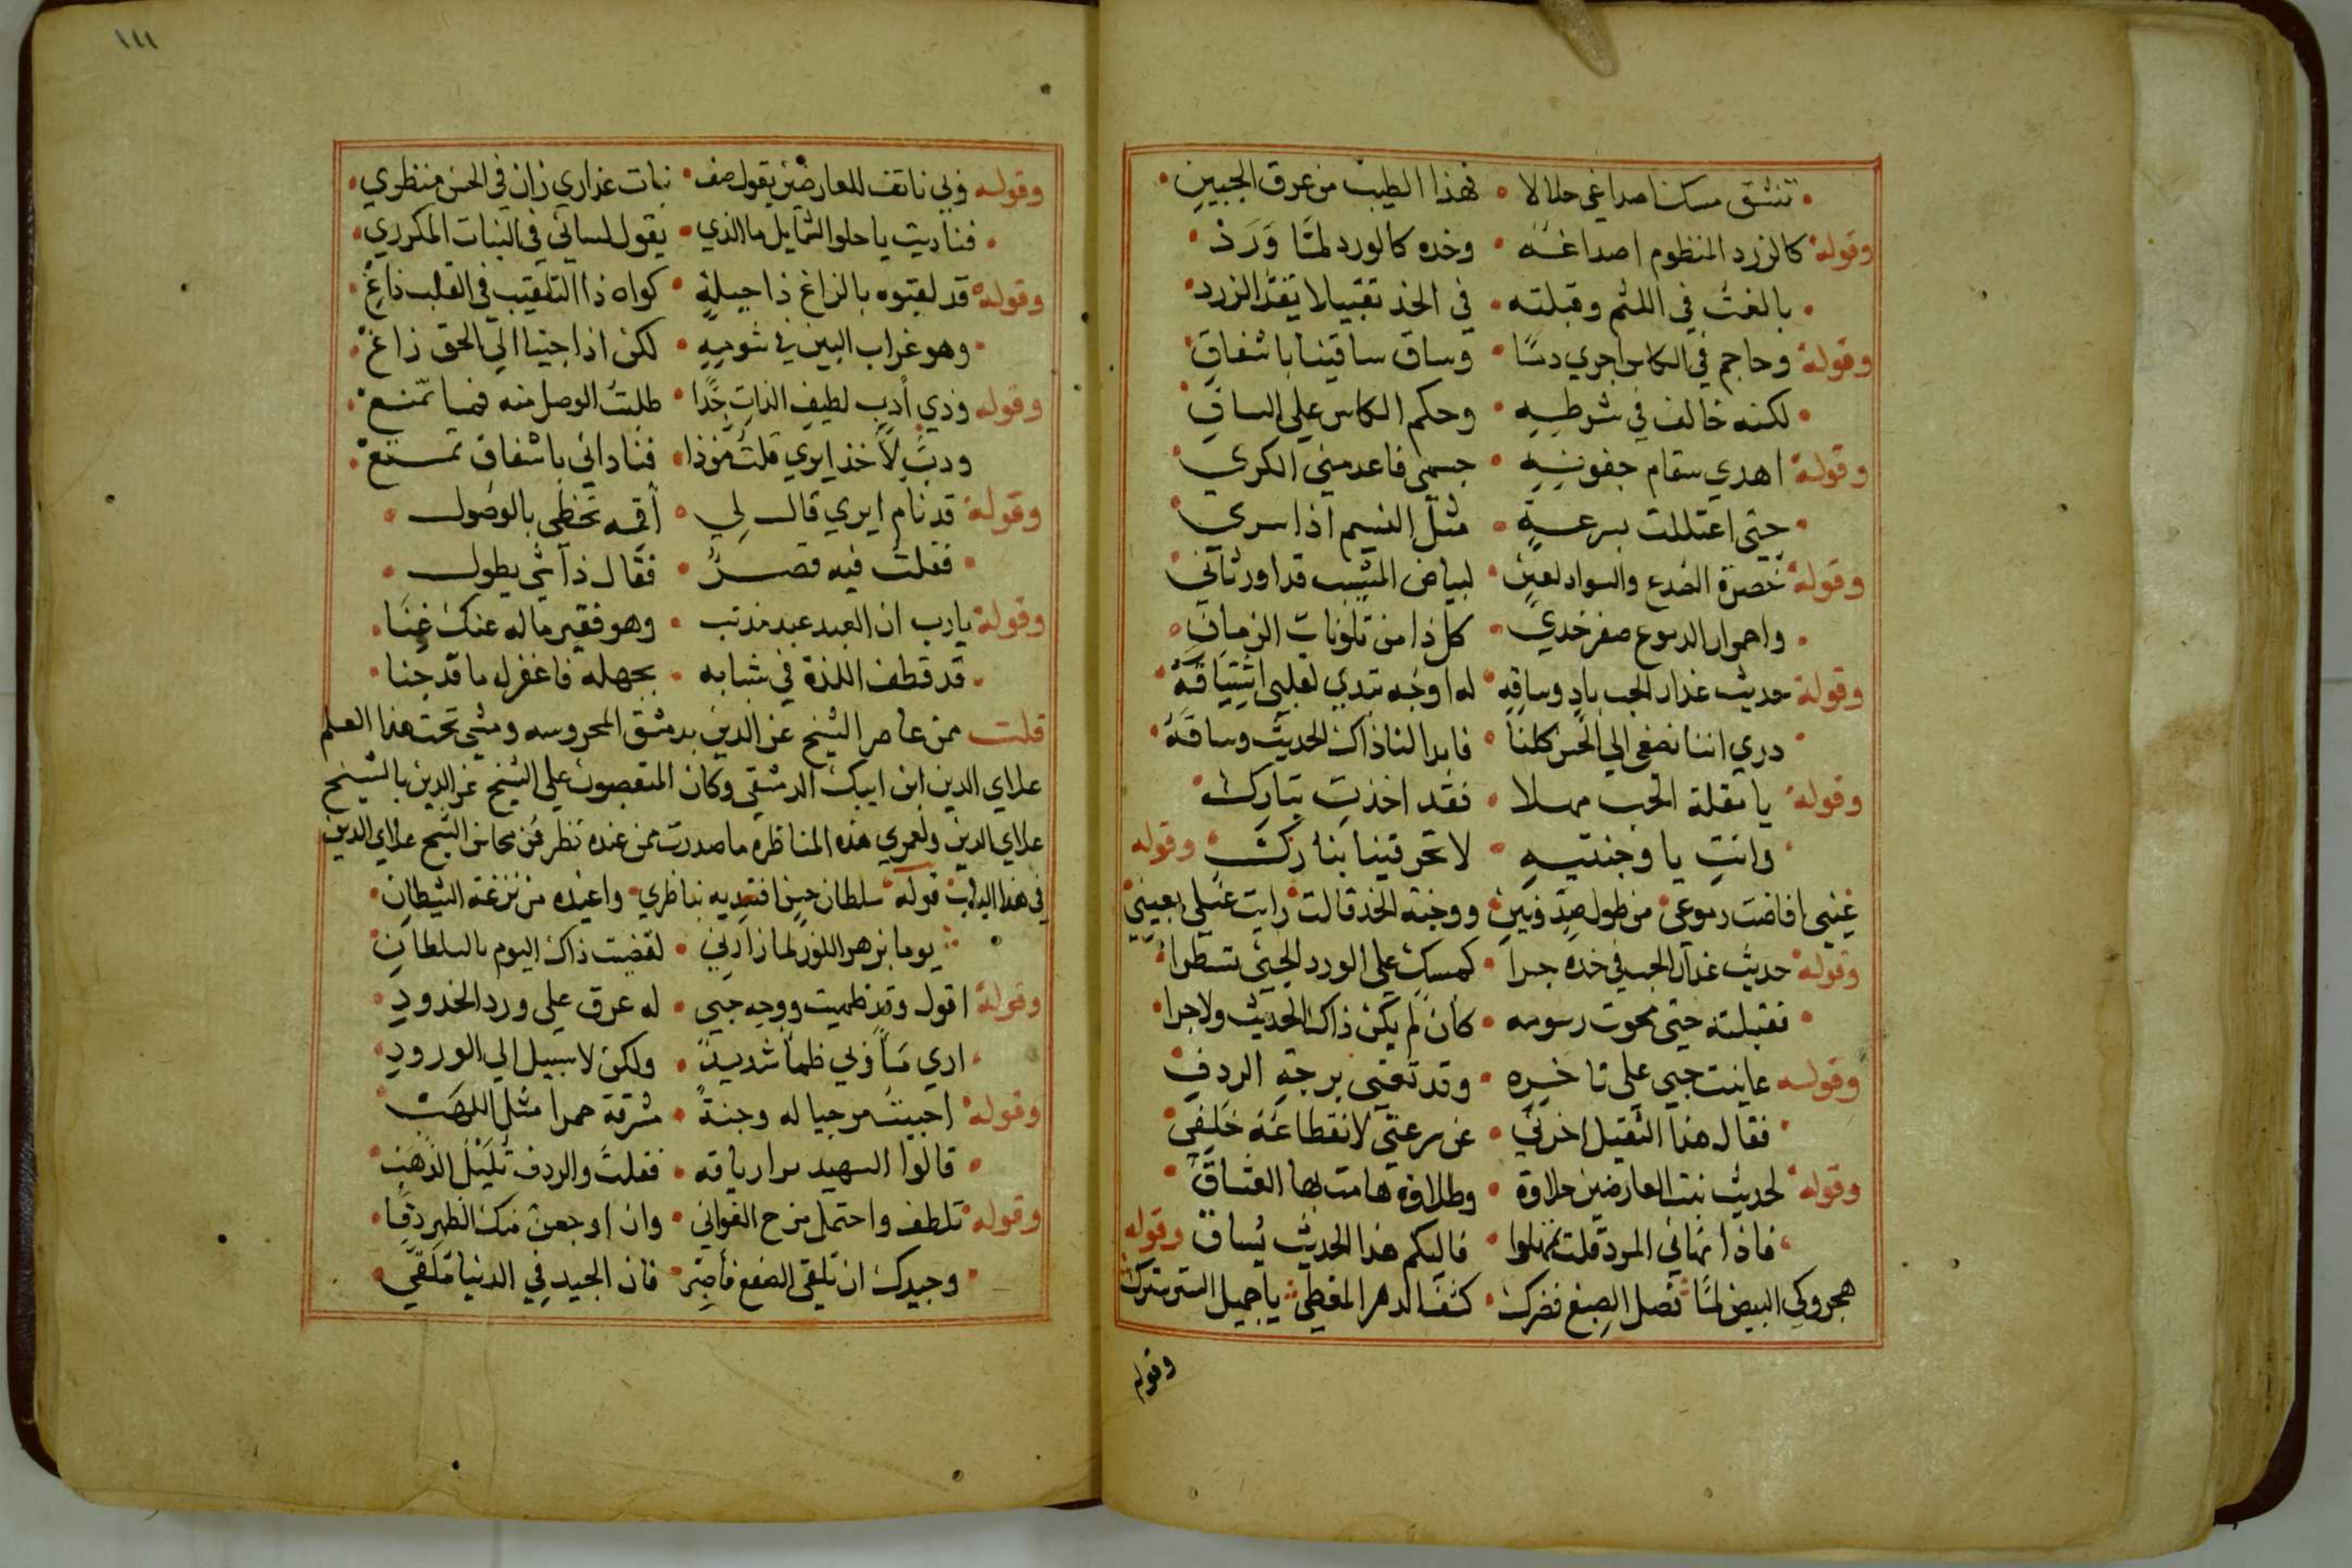 تنشق مسك اصداغي حلالا • فهذا الطيب من عرق الجبين
وقوله كالزرد المنظوم اصداغه • وخده كالورد لمّا وَرَدْ
بالغت في اللثم وقبلته • في الخد تقبيلا يفك الزرد
وقوله وحاجم في الكاس اجري دمًا • وساق ساقينا باشفاق
لكنه خالف في شرطه • وحكم الكاس علي الساق
وقوله اهدي سقام جفونه • جسمي فاعدمني الكري
حتي اعتللت بسرعة • مثل النسيم اذا سري
وقوله خضرة الصدغ والسواد لعين • لبياض المشيب قد اورثاني
واحمرار الدموع صفر خدي • كل ذا من تلونات الزمان
وقوله حديث عذار الحب باد وساقه • له اوجه تبدي لقلبي اشتياقه
دري اننا نصغي الي الحسن كلنا • فابدا لنا ذاك الحديث وساقه
وقوله يا مقلة الحب مهلا • فقد اخذت بتارك
وانتِ يا وجنتيه • لا تحرقينا بنارك وقوله
عيني افاضت دموعي من طول صد وبين • ووجنة الخد قالت رايت غسلي بعيني
وقوله حديث عذار الحب في خده جرا • كمسك علي الورد الجني تسطرا
فقبلته حتي محوت رسومه • كان لم يكن ذاك الحديث ولا جرا
وقوله عاينت حبي علي تا خيره • وقد تعني برجة الردف
فقال هذا الثقيل اخرني • عن سرعتي لانقطاعه خلفي
وقوله لحديث نبت العارضين حلاوة • وطلاوة هامت بها العشاق
فاذا نهاني المرد قلت تمهلوا • فاليكم هذا الحديث يساق وقوله
هجروكي البيض لمّا نصل الصبغ فضرك • كشف الدهر المغطي يا جميل الستر سترك
وقوله
١١١
وقوله ولي ناتف للعارضين يقول صف • نبات عذاري زان في الحسن منظري
فناديت يا حلو الشمايل ما الذي • يقول لساني في النبات المكرري
وقوله قد لقبوه بالزاغ ذا حيلة • كواه ذا التلقيب في القلب زاغ
وهو غراب البين في شومه • لكن اذا جينا الي الحق زاغ
وقوله وذي أدب لطيف الذات جدا • طلبت الوصل منه فما تمنع
ودبّ لأخذ ايري قلت خذ ذا • فناداني باشفاق تمتع
وقوله قد نام ايري قال لي • أقمه تحظي بالوصول
فقلت فيه قصر • فقال ذا شي يطول
وقوله يا رب ان العبد عبد مذنب • وهو فقير ماله عنك غنا
قد قطف اللذة في شبابه • بجهله فاغفر له ما قد جنا
قلت ممن عاصر الشيخ عز الدين بدمشق المحروسه ومشي تحت هذا العلم
علاي الدين ابن ايبك الدمشقي وكان المتعصبون علي الشيخ عز الدين بالشيخ
علاي الدين ولعمري هذه المناظره ما صدرت ممن عنده نظر فمن محاسن الشيخ علاي الدين
في هذا الباب قوله سلطان حسن افتديه بناظري • واعيذه من نزغة الشيطان
يوما بزهر اللوز لما زارني • لقضيت ذاك اليوم بالسلطان
وقوله اقول وقد ظميت ووجه حبي • له عرق علي ورد الخدود
اري مأ ولي ظمأ شديد • ولكن لا سبيل الي الورود
وقوله احببت من حيا له وجنة • مشرقة حمرا مثل اللهب
قالوا السهيد برا رياقه • فقلت والردف تليل الذهب
وقوله تلطف واحتمل مزح الغواني • وان اوجعن منك الظهر دقا
وجيدك ان تلقي الصفع فاصبر • فان الجيد في الدنيا ملقي